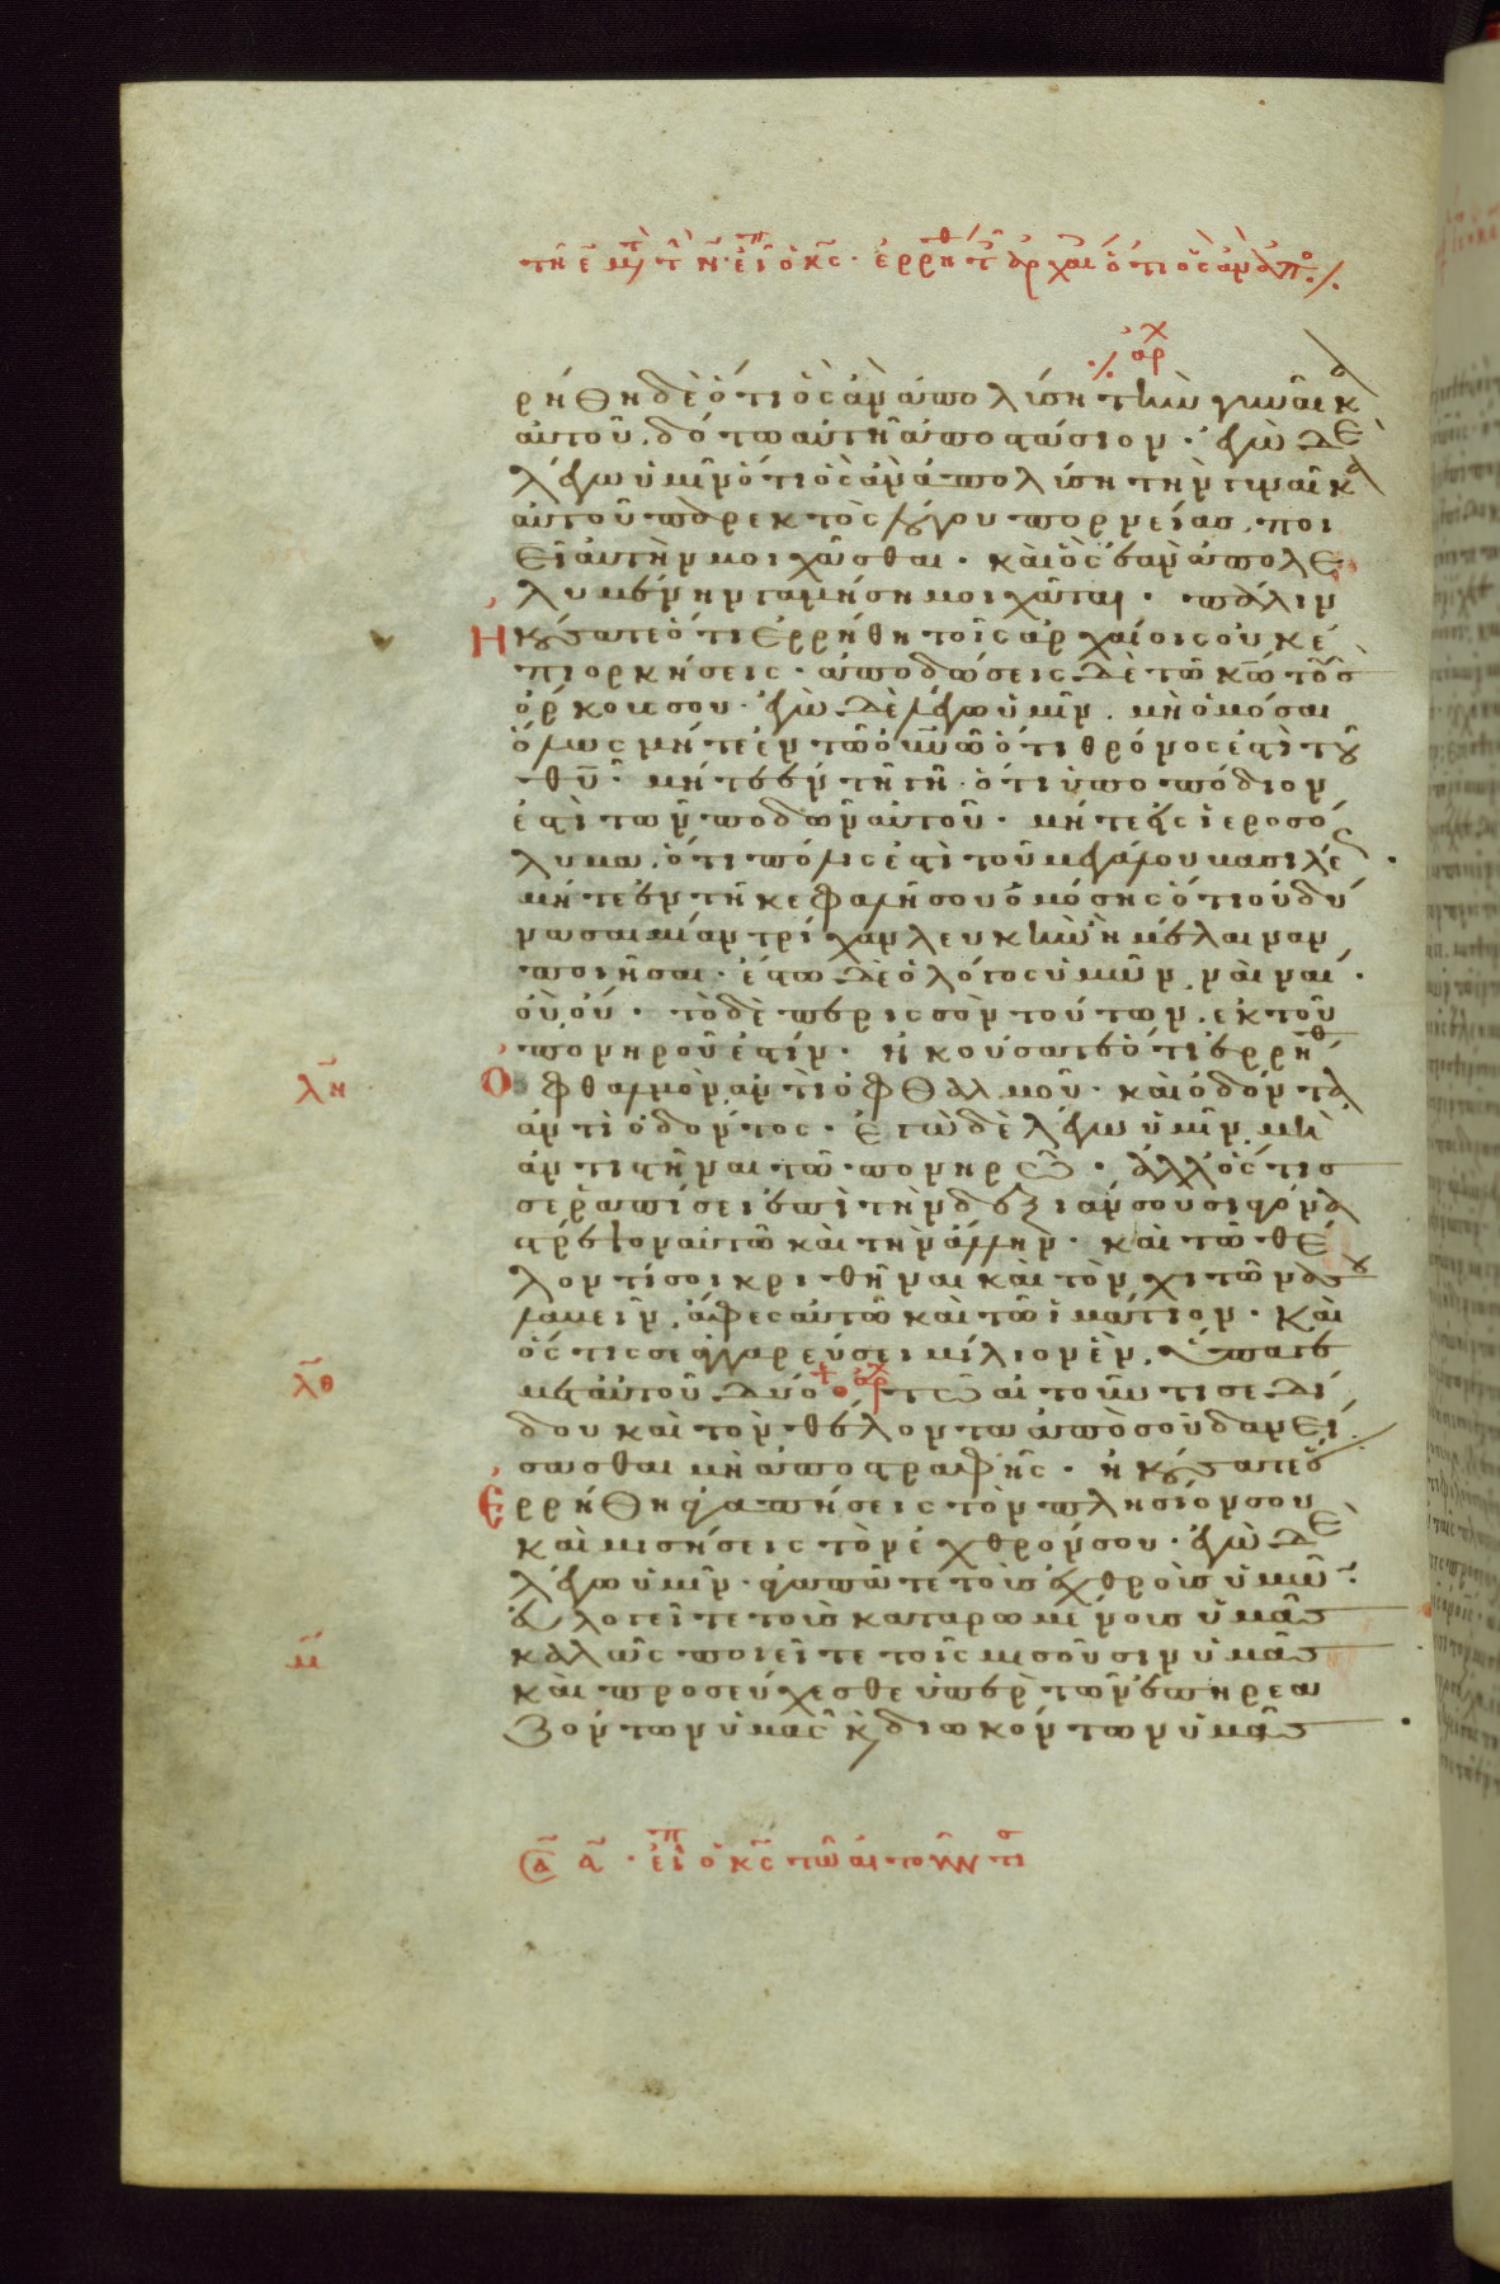 τῆ ε̄ μ τ ν̄ · εἶπ ὁ κ̄ς · ἐρρήθ τ ἀρχαι ὅτι ὃς ἂν ἀπο
ἀρχ
ρήθη δὲ ὅτι ὃς ἂν ἀπολύση τὴν γυναῖκα
αὐτοῦ. δότω αὐτῆ ἀποστάσιον · ἐγὼ δὲ
λέγω ὑμῖν ὅτι ὃς ἂν ἀπολύση τὴν γυναῖκα
αὐτοῦ παρεκτὸς λόγου πορνείας, ποι
εῖ αὐτὴν μοιχᾶσθαι · καὶ ὃς ἐὰν ἀπολε
λυμένην γαμήση μοιχᾶται · πάλιν
Ηκούσατε ὅτι ἐρρήθη τοῖς ἀρχαίοις οὐκ ἐ
πιορκήσεις · ἀποδώσεις δὲ τῶ κ̄ω τοὺς
ὅρκους σου · ἐγὼ δὲ λέγω ὑμῖν. μὴ ὀμόσαι
ὅλως μήτε ἐν τῶ οὐν̄ω ὅτι θρόνος ἐστὶ τοῦ
θ̄υ · μήτε ἐν τῆ γῆ · ὅτι ὑποπόδιον
ἐστὶ τῶν ποδῶν αὐτοῦ · μήτε εἰς ἱεροσό
λυμα, ὅτι πόλις ἐστὶ τοῦ μεγάλου βασιλέως ·
μήτε ἐν τῆ κεφαλῆ σου ὀμόσης ὅτι οὐ δύ
νασαι μίαν τρίχαν λευκὴν ἢ μέλαιναν
ποιῆσαι · ἔστω δὲ ὁ λόγος ὑμῶν, ναὶ ναί ·
οὒ οὔ · τὸ δὲ περισσὸν τούτων, ἐκ τοῦ
πονηροῦ ἐστίν · ἠκούσατε ὅτι ἐρρήθ
λη̄ Οφθαλμὸν ἀντὶ ὀφθαλμοῦ · καὶ ὀδόντα
ἀντὶ ὀδόντος · ἐγὼ δὲ λέγω ὑμῖν μὴ
ἀντιστῆναι τῶ πονηρῶ · ἀλλ' ὅστις
σε ραπίσει ἐπὶ τὴν δεξιάν σου σιαγόνα
στρέψον αὐτῶ καὶ τὴν ἄλλην · καὶ τῶ θέ
λοντί σοι κριθῆναι καὶ τὸν χιτῶνά σου
λαβεῖν, ἄφες αὐτῶ καὶ τῶ ἱμάτιον · καὶ
ὅς τις σε ἀγγαρεύσει μίλιον ἓν, ὕπαγε
λθ̄ μετ' αὐτοῦ δύο ἀρχ τῶ αἰτοῦντι σε δί
δου καὶ τὸν θέλοντα ἀπὸ σοῦ δανεί
σασθαι μὴ ἀποστραφῆς · ἠκούσατε ὅτι
Ερρήθη ἀγαπήσεις τὸν πλησίον σου
καὶ μισήσεις τὸν ἐχθρόν σου · ἐγὼ δὲ
λέγω ὑμῖν · ἀγαπᾶτε τοὺς ἐχθροὺς ὑμῶν ·
εὐλογεῖτε τοὺς καταρωμένους ὑμᾶς
μ̄ καλῶς ποιεῖτε τοῖς μισοῦσιν ὑμᾶς
καὶ προσεύχεσθε ὑπὲρ τῶν ἐπηρεα
ζόντων ὑμᾶς κ διωκόντων ὑμᾶς
ᾱ · εἶπ ὁ κ̄ς τῶ αἰτοῦντι